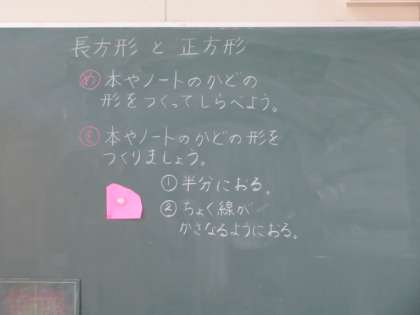 長方形と正方形
め 本やノートのかどの
形をつくってしらべよう。
も 本やノートのかどの形を
つくりましょう。
① 半分におる。
② ちょく線が
かさなるようにおる。